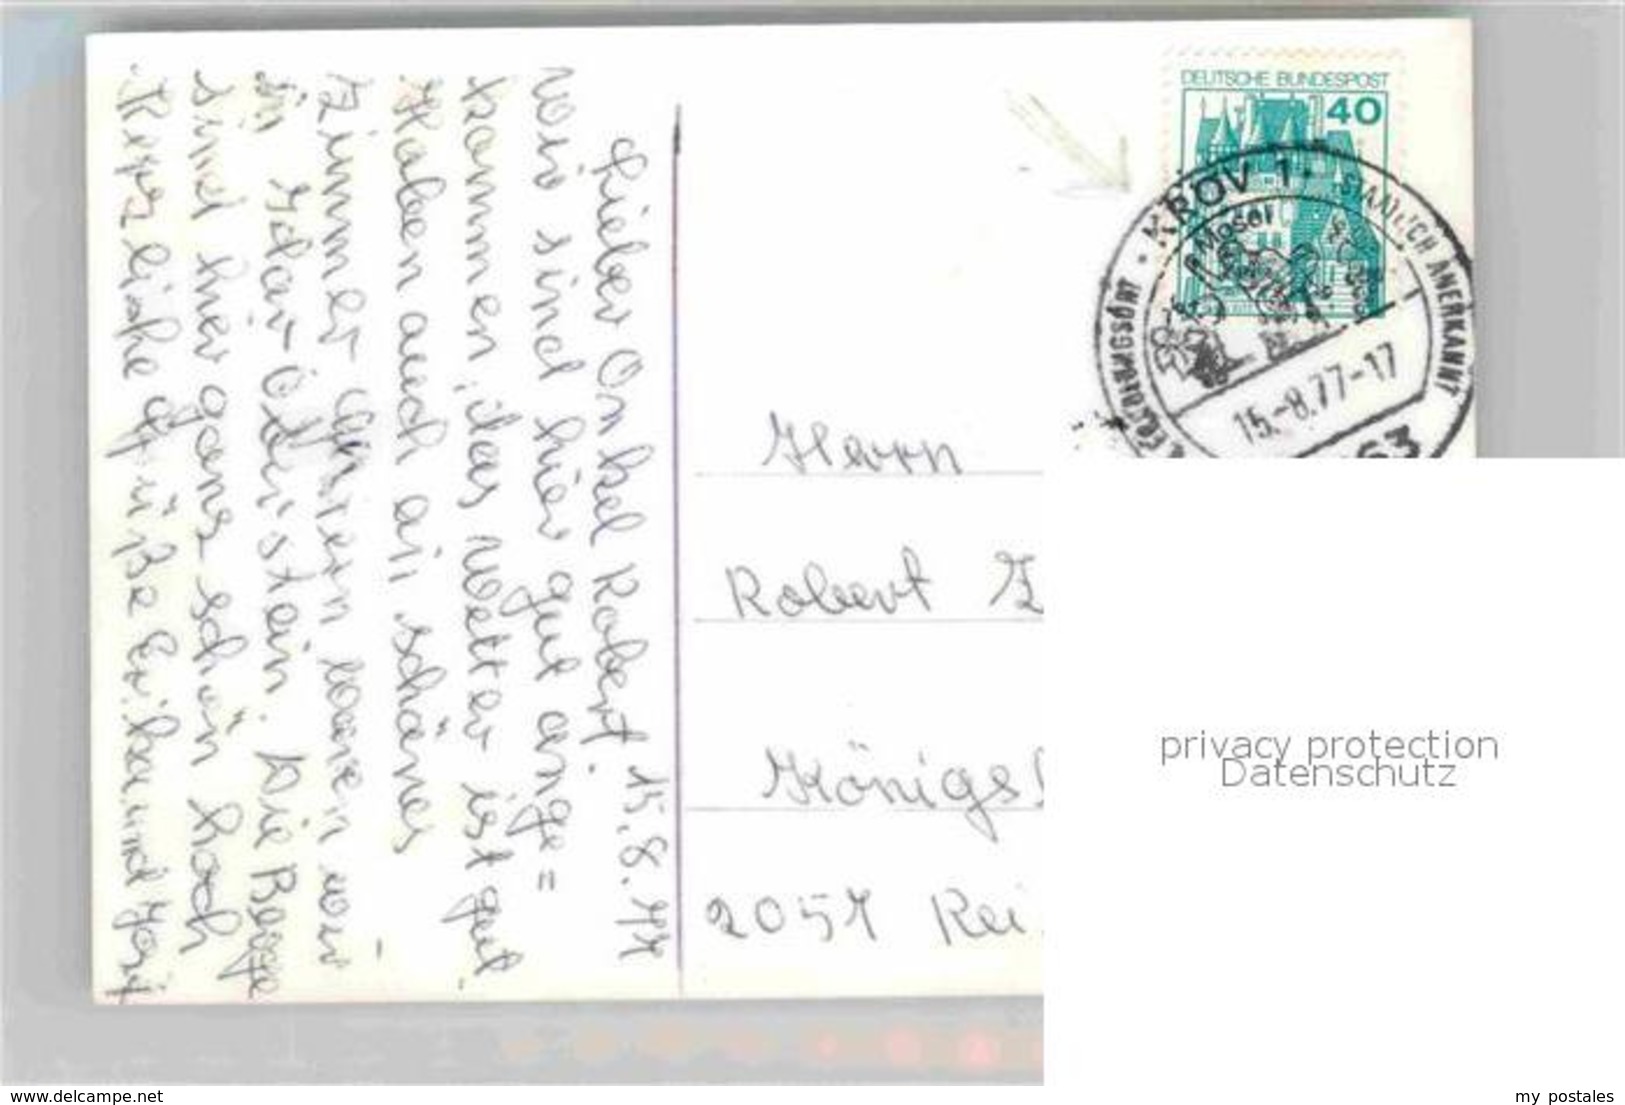 15.8.77
Lieber Onkel Robert.
Wir sind hier gut ange=
kommen, das Wetter ist gut.
Haben auch ein schönes
Zimmer. Gestern waren wir
in Idar-Oberstein. Die Berge
sind hier ganz schön hoch
Herzliche Grüße Erika und
DEUTSCHE BUNDESPOST
40
KRÖV 1
STAATLICH ANERKANNT
ERHOLUNGSORT
Mosel
15.-8.77-17
63
Herrn
Robert
Königs
2057 Rei
privacy protection
Datenschutz
www.delcampe.net
my postales